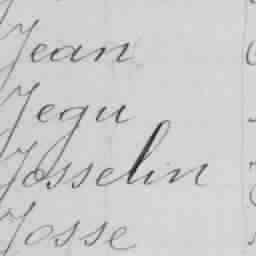 Jean
Jegu
Josselin
Josse